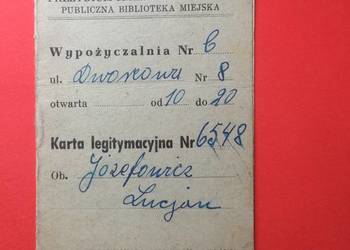 PUBLICZNA BIBLIOTEKA MIEJSKA
Wypożyczalnia Nr 6
ul. Dworkowa Nr 8
otwarta od 10 do 20
Karta legitymacyjna Nr 6548
Ob. Józefowicz
Lucjan